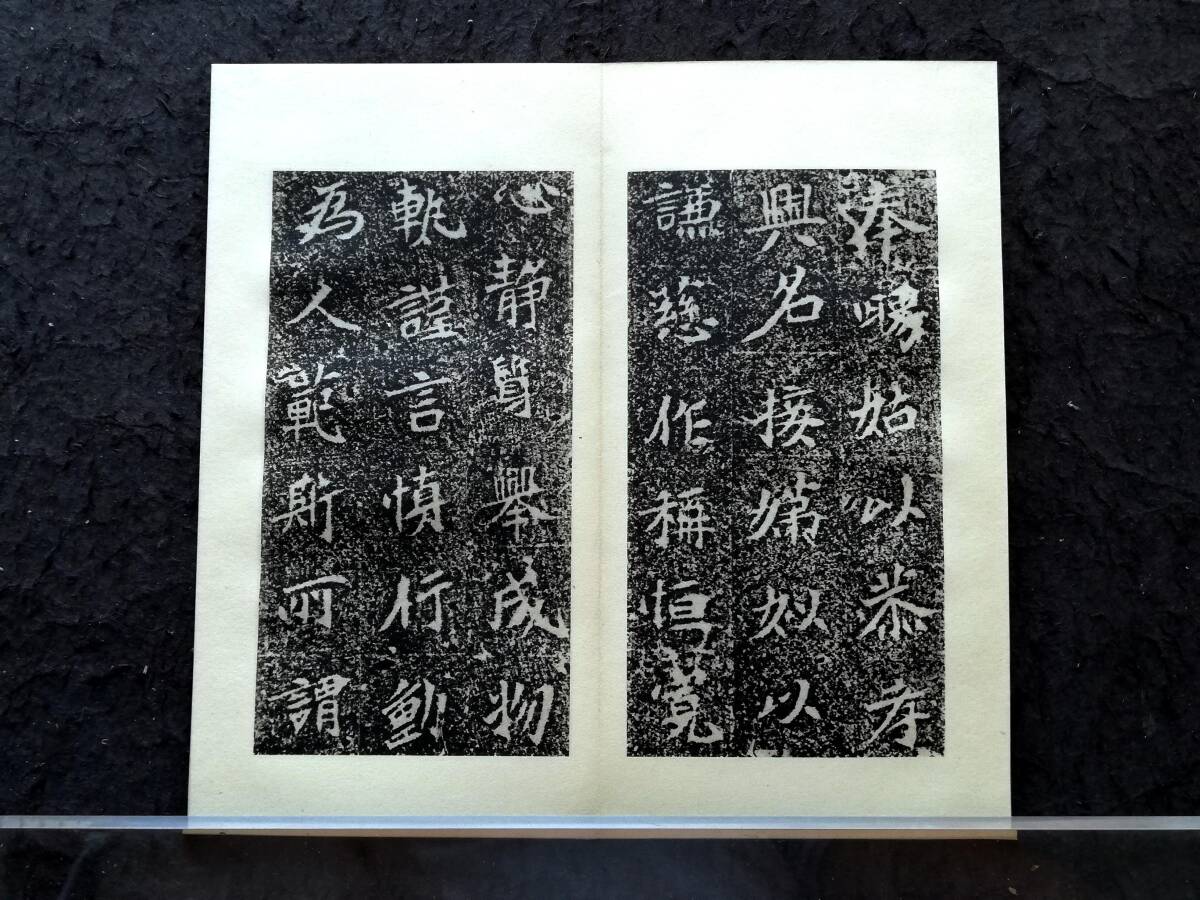 奉舅姑以恭孝
興名接娣姒以
謙慈作稱恒寬
心靜質舉成物
軌謹言慎行動
為人範斯所謂